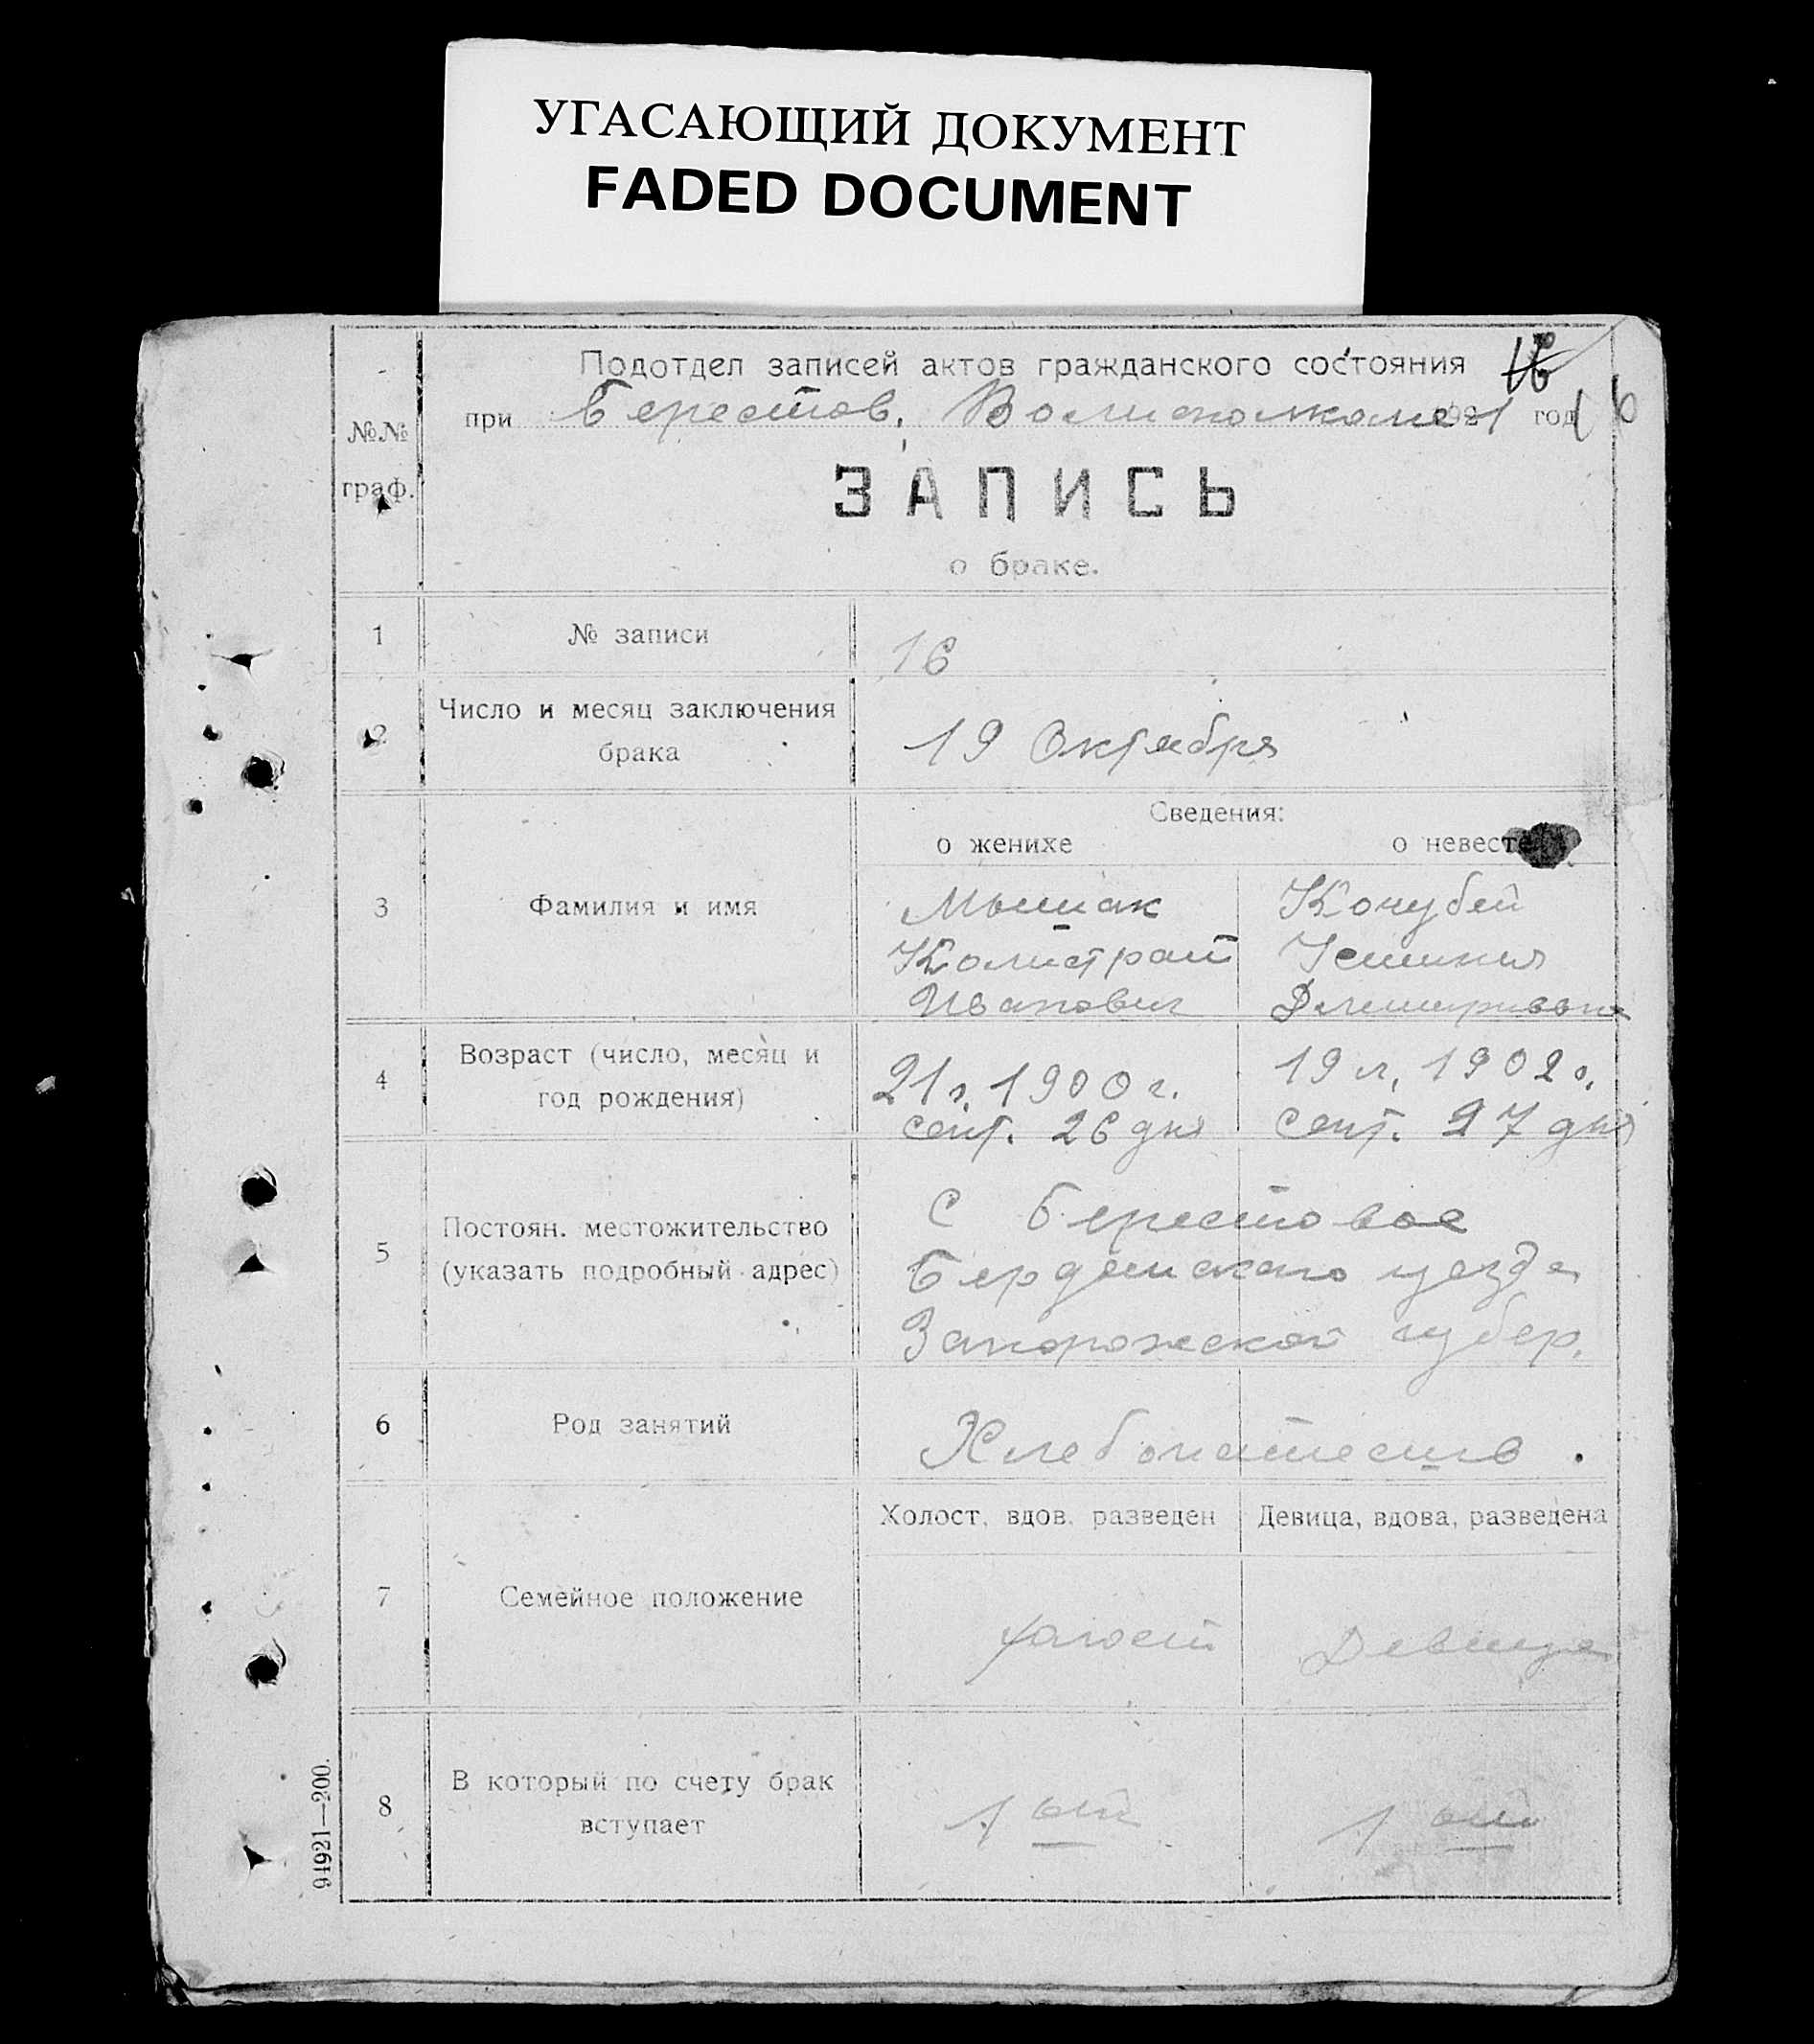 УГАСАЮЩИЙ ДОКУМЕНТ
FADED DOCUMENT
Подотдел записей актов гражданского состояния
16
№№ граф.
при Берестов. Волисполкоме 1921 год
16
ЗАПИСЬ
о браке.
1 № записи 16
2 Число и месяц заключения брака 19 Октября
Сведения:
о женихе о невесте
3 Фамилия и имя
Мышак Кочубей
Калистрат Устинья
Иванович
4 Возраст (число, месяц и год рождения)
21 г. 1900 г. 19 л. 1902 г.
сент. 26 дня сент. 27 дня
5 Постоян. местожительство (указать подробный адрес)
С Берестовое
Бердянского уезда
Запорожской губер.
6 Род занятий Хлебопашеств.
Холост, вдов, разведен Девица, вдова, разведена
7 Семейное положение холост Девица
8 В который по счету брак вступает 1 ый 1 ый
94921—200.